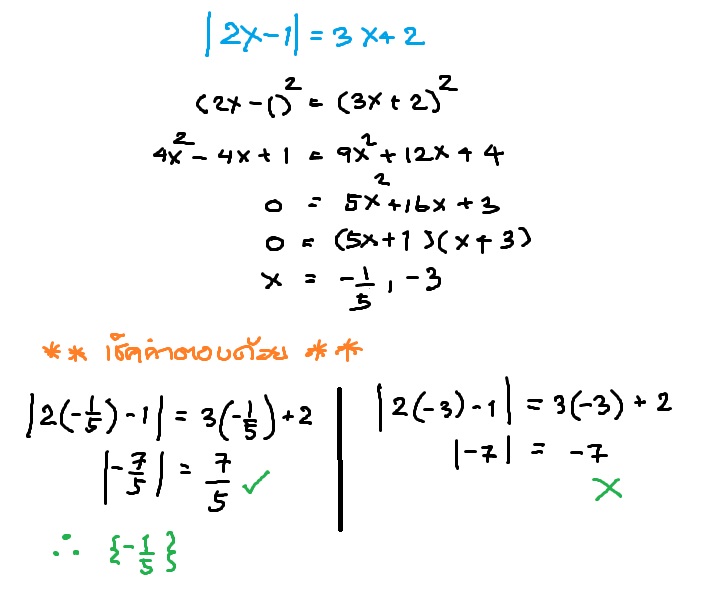 |2x-1| = 3x+2
(2x-1)² = (3x+2)²
4x² - 4x + 1 = 9x² + 12x + 4
0 = 5x² + 16x + 3
0 = (5x+1)(x+3)
x = -1/5, -3
** เช็คคำตอบด้วย **
|2(-1/5) - 1| = 3(-1/5) + 2
|-7/5| = 7/5 ✓
|2(-3) - 1| = 3(-3) + 2
|-7| = -7
X
∴ {-1/5}